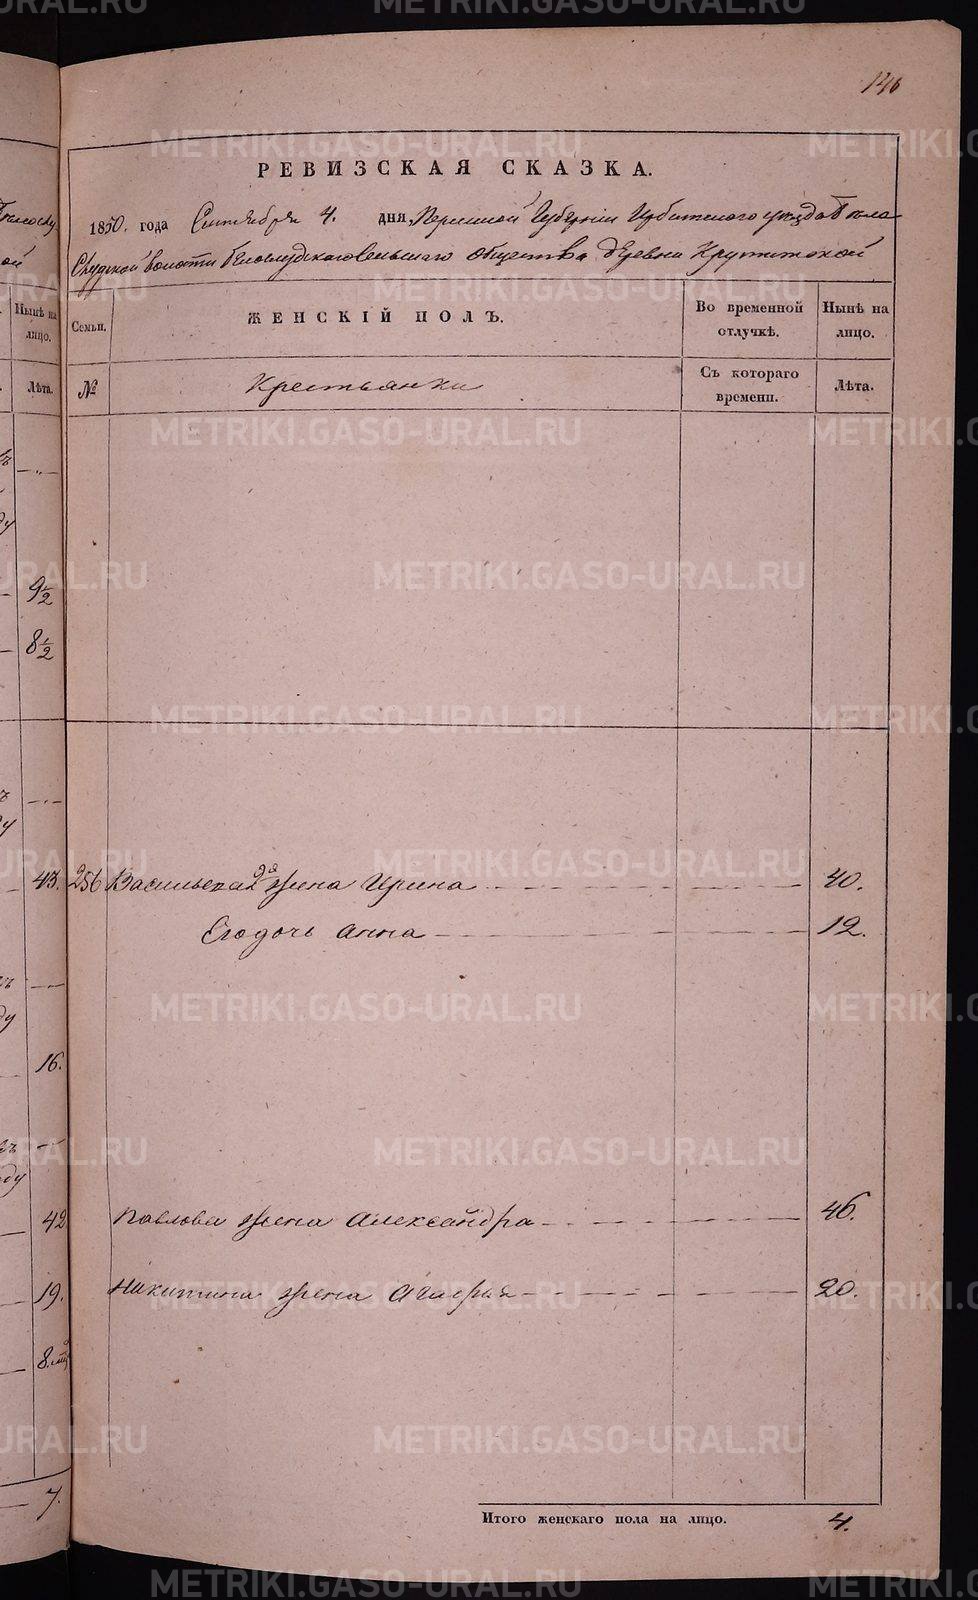 146
РЕВИЗСКАЯ СКАЗКА.
1850. года Сентября 4. дня, Пермской Губерніи Ирбитского уезда Бѣло
Слудской волости Белослудского сельскаго общества деревни Крутихской
Семьи. ЖЕНСКІЙ ПОЛЪ. Во временной отлучкѣ. Нынѣ на лицо.
№ Крестьянки Съ котораго времени. Лѣта.
256 Васильева 2я жена Ирина 40.
Его дочь Анна 12.
Павлова жена Александра 46.
Никитина жена Агафья 20.
Итого женскаго пола на лицо. 4.
Нынѣ на
лицо.
Лѣта.
9½
8½
43.
16.
42
19.
8.
7.
METRIKI.GASO-URAL.RU